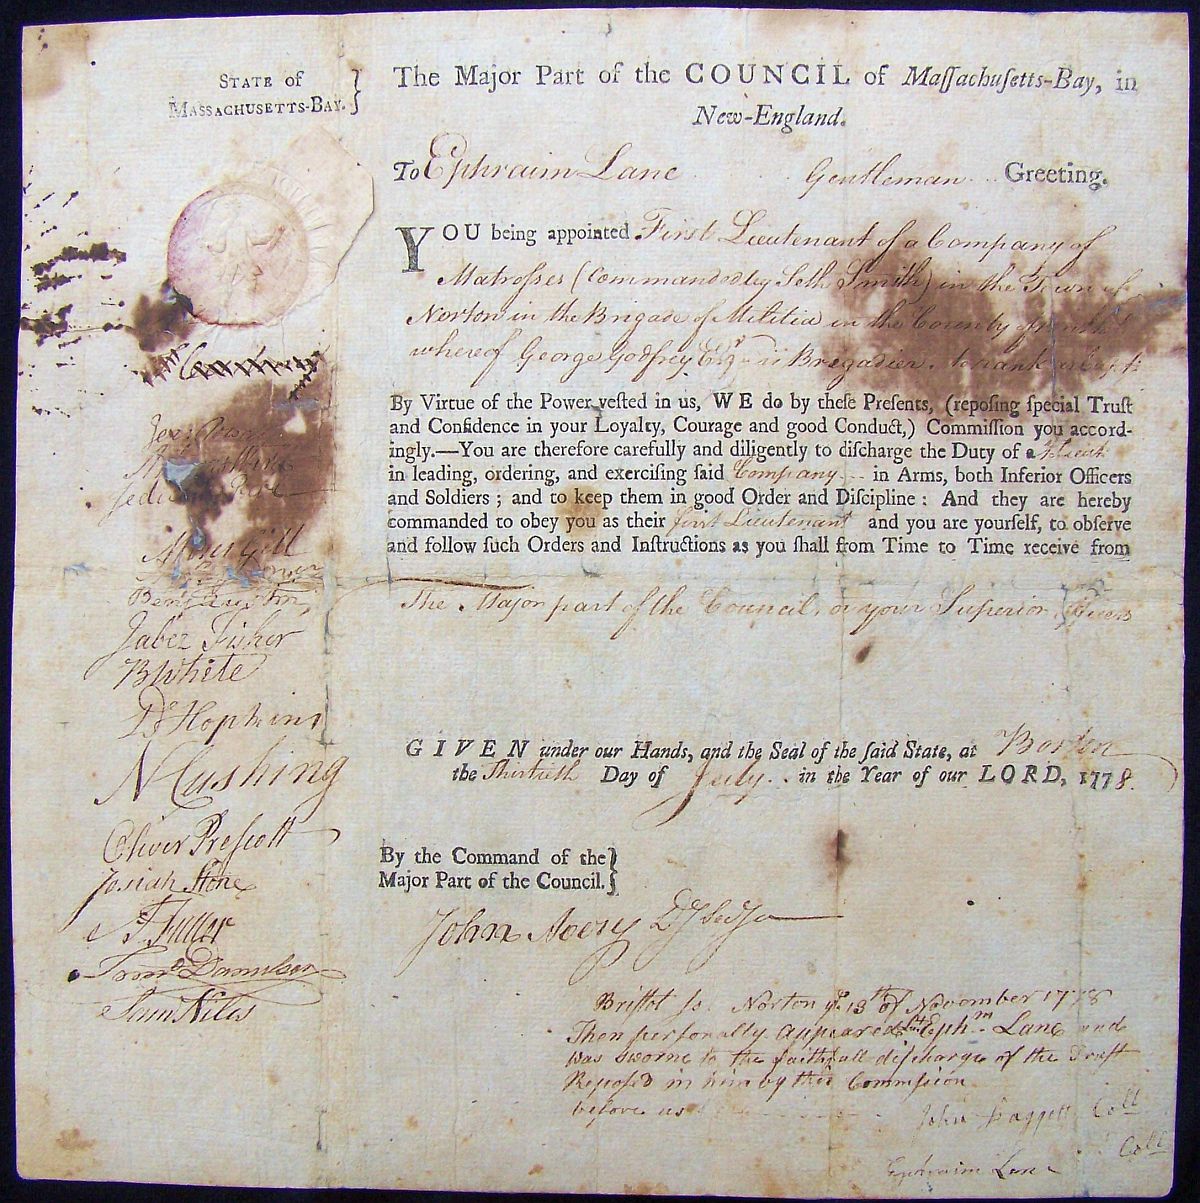 STATE of
MASSACHUSETTS-BAY. }
The Major Part of the COUNCIL of Maſſachuſetts-Bay, in
New-England.
To Ephraim Lane Gentleman Greeting.
YOU being appointed First Lieutenant of a Company of
Matroſses (Commanded by Seth Smith) in the Town of
Norton in the Brigade of Militia in the County of
whereof George Godfrey Esqr is Brigadier. to rank as
By Virtue of the Power veſted in us, WE do by theſe Preſents, (repoſing ſpecial Truſt
and Confidence in your Loyalty, Courage and good Conduct,) Commiſſion you accord-
ingly.—You are therefore carefully and diligently to diſcharge the Duty of a
in leading, ordering, and exerciſing ſaid Company in Arms, both Inferior Officers
and Soldiers; and to keep them in good Order and Diſcipline: And they are hereby
commanded to obey you as their first Lieutenant and you are yourſelf, to obſerve
and follow ſuch Orders and Inſtructions as you ſhall from Time to Time receive from
The Major part of the Council, or your Superior Officers
Moses Gill
Benj Austin
Jabez Fisher
B White
D Hopkins
N Cushing
Oliver Preſcott
Josiah Stone
Fuller
Danielson
Sam Niles
GIVEN under our Hands, and the Seal of the ſaid State, at Boston
the Thirtieth Day of July in the Year of our LORD, 1778.
By the Command of the }
Major Part of the Council. }
John Avery Dy Secy
Briſtol ſs. Norton ye 13th of November 1778
Then perſonally appeared Lt Ephm Lane and
was sworne to the faithfull diſcharge of the Trust
Repoſed in him by this Commission
before us
John Daggett Coll
Coll
Ephraim Lane